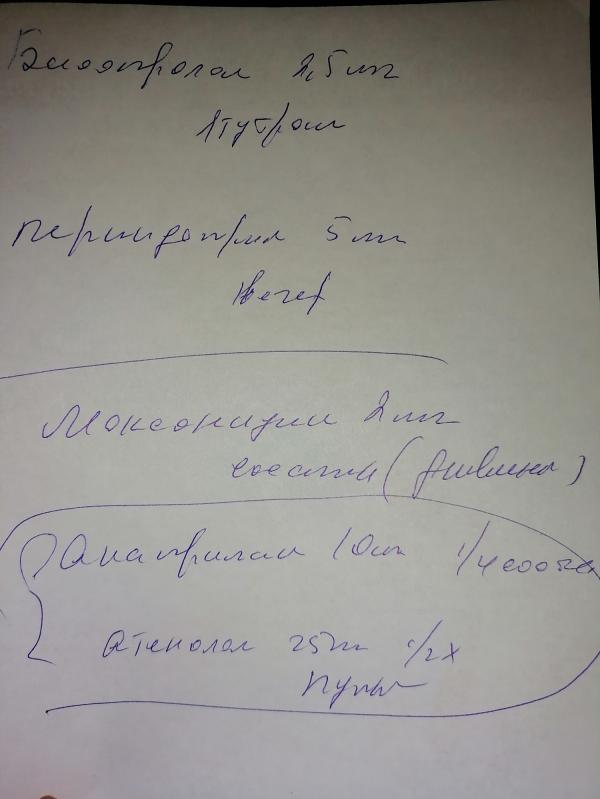 Бисопролол 2,5 мг
1т утром
Периндоприл 5 мг
вечер
Моксонидин 2 мг
если (давлени)
Анаприлин 10 мг 1/4
Атенолол 25 мг 1/2х
пульс